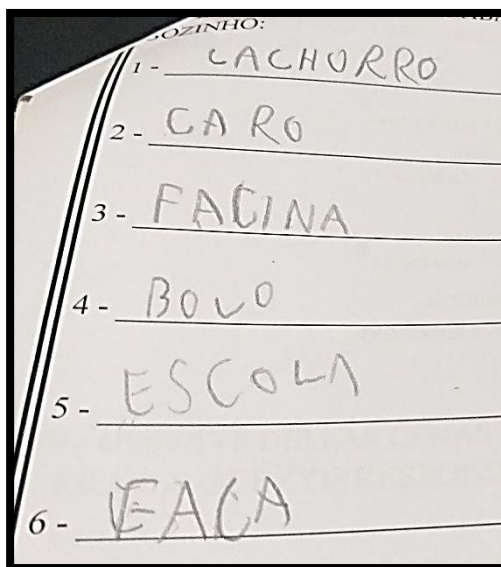 OZINHO:
1 - CACHORRO
2 - CARO
3 - FACINA
4 - BOLO
5 - ESCOLA
6 - FACA